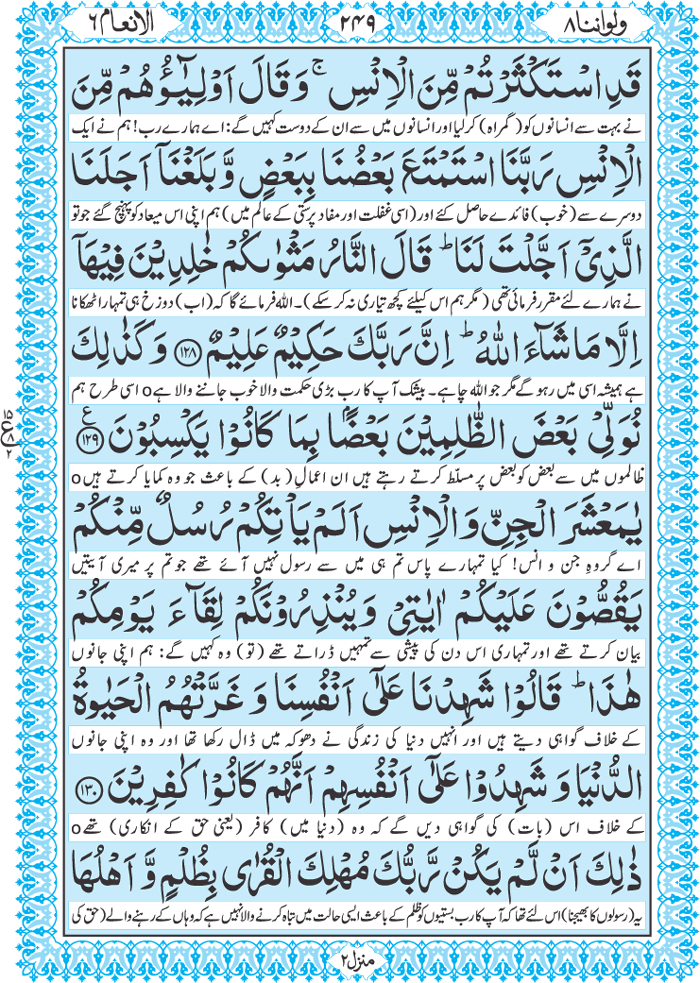 ولواننا ۸
۲۴۹
الانعام ۶
قَدِ اسْتَكْثَرْتُمْ مِّنَ الْاِنْسِ ۚ وَقَالَ اَوْلِيٰٓـؤُهُمْ مِّنَ
نے بہت سے انسانوں کو (گمراہ) کر لیا اور انسانوں میں سے ان کے دوست کہیں گے: اے ہمارے رب! ہم نے ایک
الْاِنْسِ رَبَّنَا اسْتَمْتَعَ بَعْضُنَا بِبَعْضٍ وَّ بَلَغْنَاۤ اَجَلَنَا
دوسرے سے (خوب) فائدے حاصل کئے اور (اسی غفلت اور مفاد پرستی کے عالم میں) ہم اپنی اس میعاد کو پہنچ گئے جو تو
الَّذِىْۤ اَجَّلْتَ لَنَا ؕ قَالَ النَّارُ مَثْوٰىكُمْ خٰلِدِيْنَ فِيْهَاۤ
نے ہمارے لئے مقرر فرمائی تھی (مگر ہم اس کیلئے کچھ تیاری نہ کر سکے)۔ اللہ فرمائے گا کہ (اب) دوزخ ہی تمہارا ٹھکانا
اِلَّا مَا شَآءَ اللّٰهُ ؕ اِنَّ رَبَّكَ حَكِيْمٌ عَلِيْمٌ ﴿۱۲۸﴾ وَ كَذٰلِكَ
ہے ہمیشہ اسی میں رہو گے مگر جو اللہ چاہے۔ بیشک آپ کا رب بڑی حکمت والا خوب جاننے والا ہے o اسی طرح ہم
نُوَلِّىْ بَعْضَ الظّٰلِمِيْنَ بَعْضًۢا بِمَا كَانُوْا يَكْسِبُوْنَ ﴿۱۲۹﴾ ع
ظالموں میں سے بعض کو بعض پر مسلّط کرتے رہتے ہیں ان اعمالِ (بد) کے باعث جو وہ کمایا کرتے ہیں o
يٰمَعْشَرَ الْجِنِّ وَ الْاِنْسِ اَلَمْ يَاْتِكُمْ رُسُلٌ مِّنْكُمْ
اے گروہِ جن و انس! کیا تمہارے پاس تم ہی میں سے رسول نہیں آئے تھے جو تم پر میری آیتیں
يَقُصُّوْنَ عَلَيْكُمْ اٰيٰتِىْ وَ يُنْذِرُوْنَكُمْ لِقَآءَ يَوْمِكُمْ
بیان کرتے تھے اور تمہاری اس دن کی پیشی سے تمہیں ڈراتے تھے (تو) وہ کہیں گے: ہم اپنی جانوں
هٰذَا ؕ قَالُوْا شَهِدْنَا عَلٰٓى اَنْفُسِنَا وَ غَرَّتْهُمُ الْحَيٰوةُ
کے خلاف گواہی دیتے ہیں اور انہیں دنیا کی زندگی نے دھوکہ میں ڈال رکھا تھا اور وہ اپنی جانوں
الدُّنْيَا وَ شَهِدُوْا عَلٰٓى اَنْفُسِهِمْ اَنَّهُمْ كَانُوْا كٰفِرِيْنَ ﴿۱۳۰﴾
کے خلاف اس (بات) کی گواہی دیں گے کہ وہ (دنیا میں) کافر (یعنی حق کے انکاری) تھے o
ذٰلِكَ اَنْ لَّمْ يَكُنْ رَّبُّكَ مُهْلِكَ الْقُرٰى بِظُلْمٍ وَّ اَهْلُهَا
یہ (رسولوں کا بھیجنا) اس لئے تھا کہ آپ کا رب بستیوں کو ظلم کے باعث ایسی حالت میں تباہ کرنے والا نہیں ہے کہ وہاں کے رہنے والے (حق کی
منزل ۲